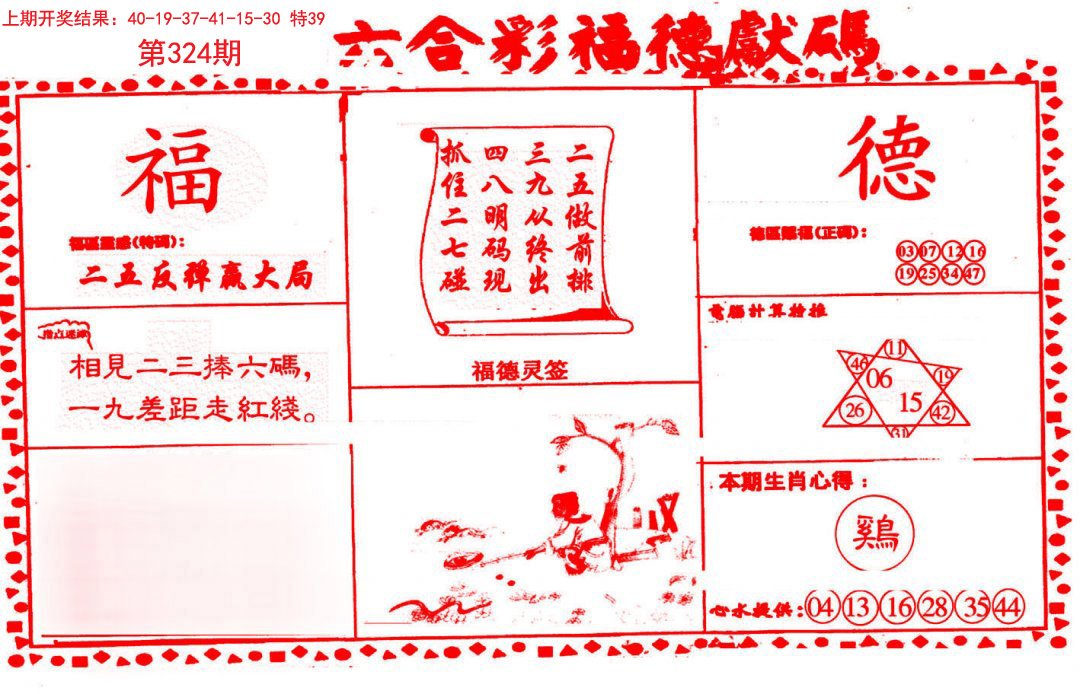 上期开奖结果：40-19-37-41-15-30 特39
第324期
六合彩福德獻碼
福
福區靈感(特碼)：
二五反弹赢大局
相見二三捧六碼，
一九差距走紅綫。
二五做前排
三九从终出
四八明码现
抓住二七碰
福德灵签
德
德區賜福(正碼)：
03 07 12 16
19 25 34 47
電腦計算檢推
11
46 06 19
26 15 42
31
本期生肖心得：
鷄
心水提供：04 13 16 28 35 44